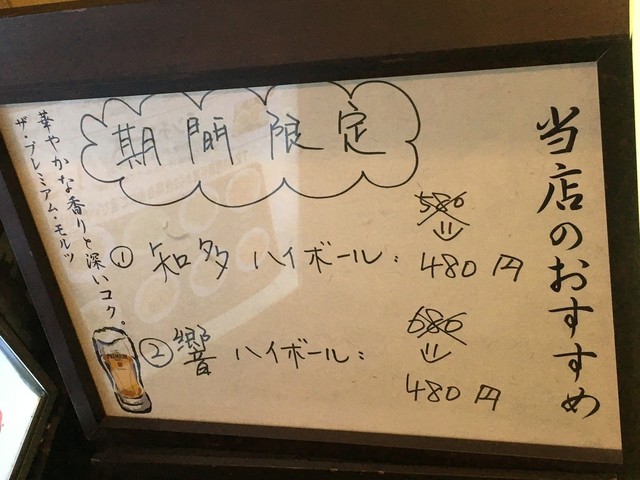 当店のおすすめ
期間限定
① 知多 ハイボール: 580
480円
② 響 ハイボール: 680
480円
華やかな香りと深いコク。
ザ・プレミアム・モルツ